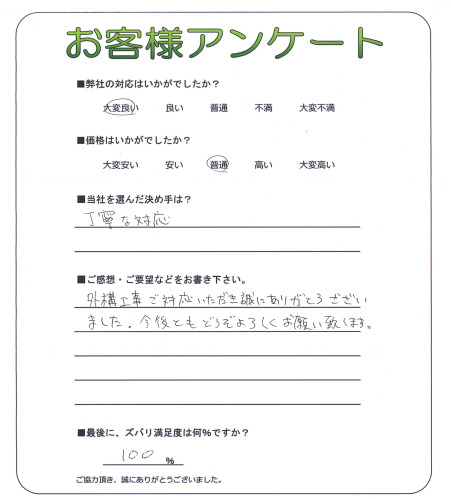 お客様アンケート
■弊社の対応はいかがでしたか？
大変良い 良い 普通 不満 大変不満
■価格はいかがでしたか？
大変安い 安い 普通 高い 大変高い
■当社を選んだ決め手は？
丁寧な対応
■ご感想・ご要望などをお書き下さい。
外構工事ご対応いただき誠にありがとうござい
ました。今後ともどうぞよろしくお願い致します。
■最後に、ズバリ満足度は何％ですか？
100 ％
ご協力頂き、誠にありがとうございました。